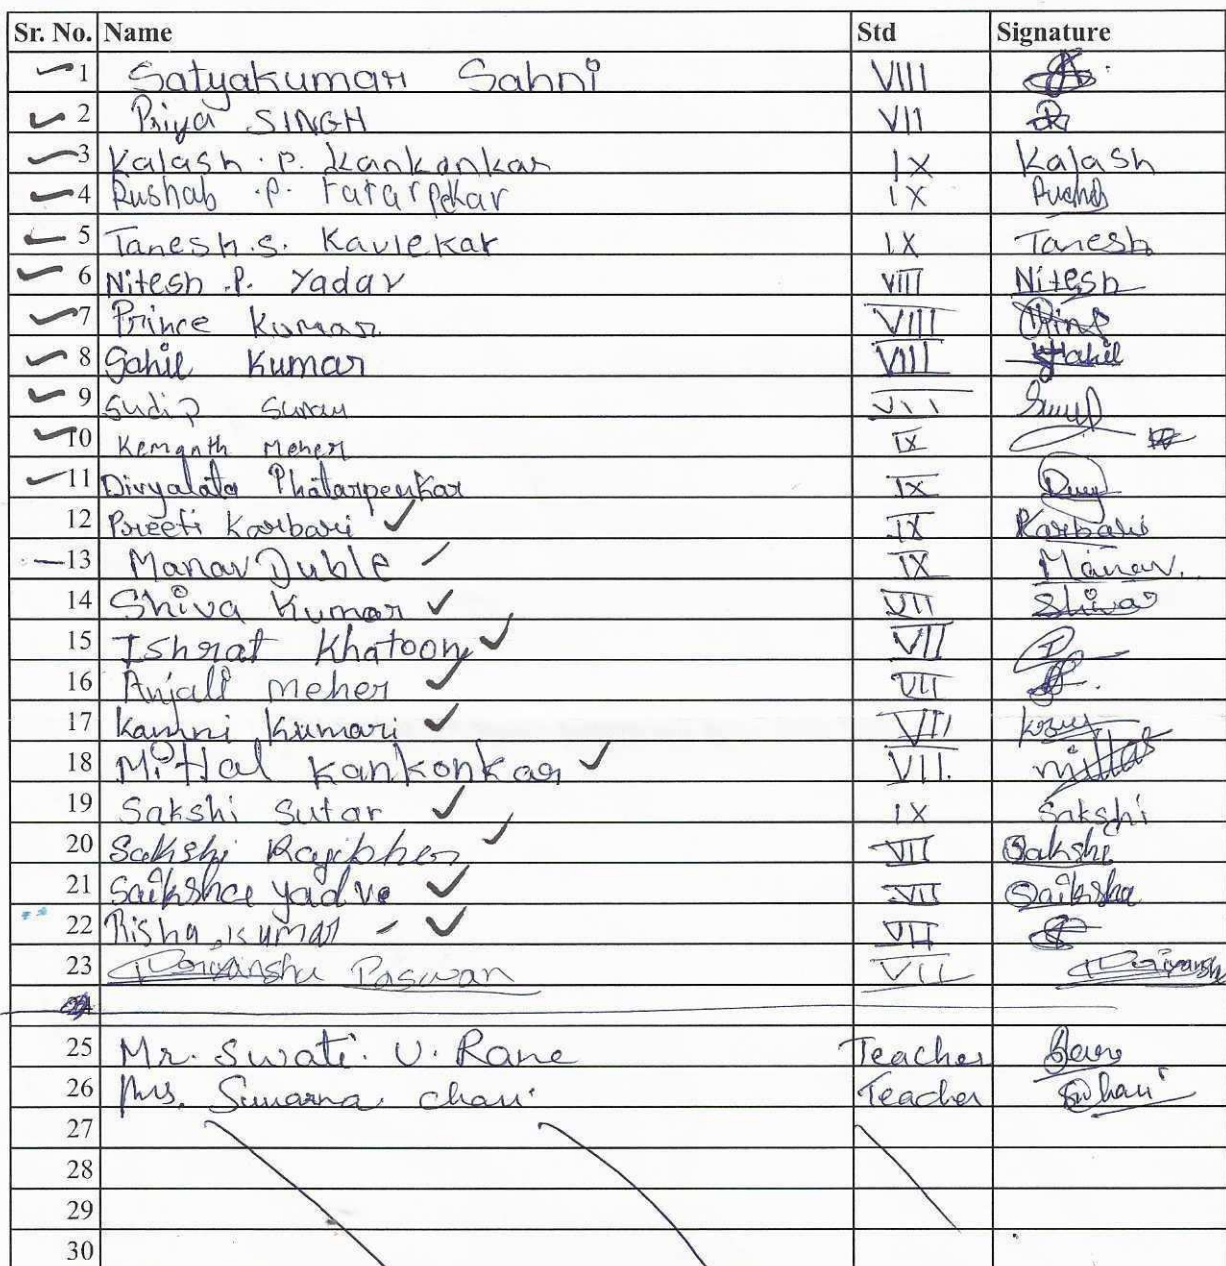 Sr. No. Name Std Signature
1 Satyakumar Sahni VIII
2 Priya SINGH VII
3 Kalash .P. Kankonkar IX Kalash
4 Rushab .P. Fatarpekar IX
5 Tanesh.S. Kavlekar IX Tanesh
6 Nitesh .P. Yadav VIII Nitesh
7 Prince Kumar VIII
8 Sahil Kumar VIII Sahil
9 Sudip VII
10 Kemanth Meher IX
11 Divyalata Phatarpenkar IX
12 Preeti Karbari IX Karbari
13 Manav Duble IX Manav.
14 Shiva Kumar VII Shiva
15 Ishrat Khatoon VII
16 Anjali Meher VII
17 Kamni Kumari VII
18 Mittal Kankonkar VII. Mittal
19 Sakshi Sutar IX Sakshi
20 Sakshi VII Sakshi
21 Saiksha yadve VII Saiksha
22 Risha Kumar VII
23 Priyanshu Paswan VII Priyanshu
25 Mr. Swati. U. Rane Teacher
26 Mrs. Suvarna chari. Teacher
27
28
29
30